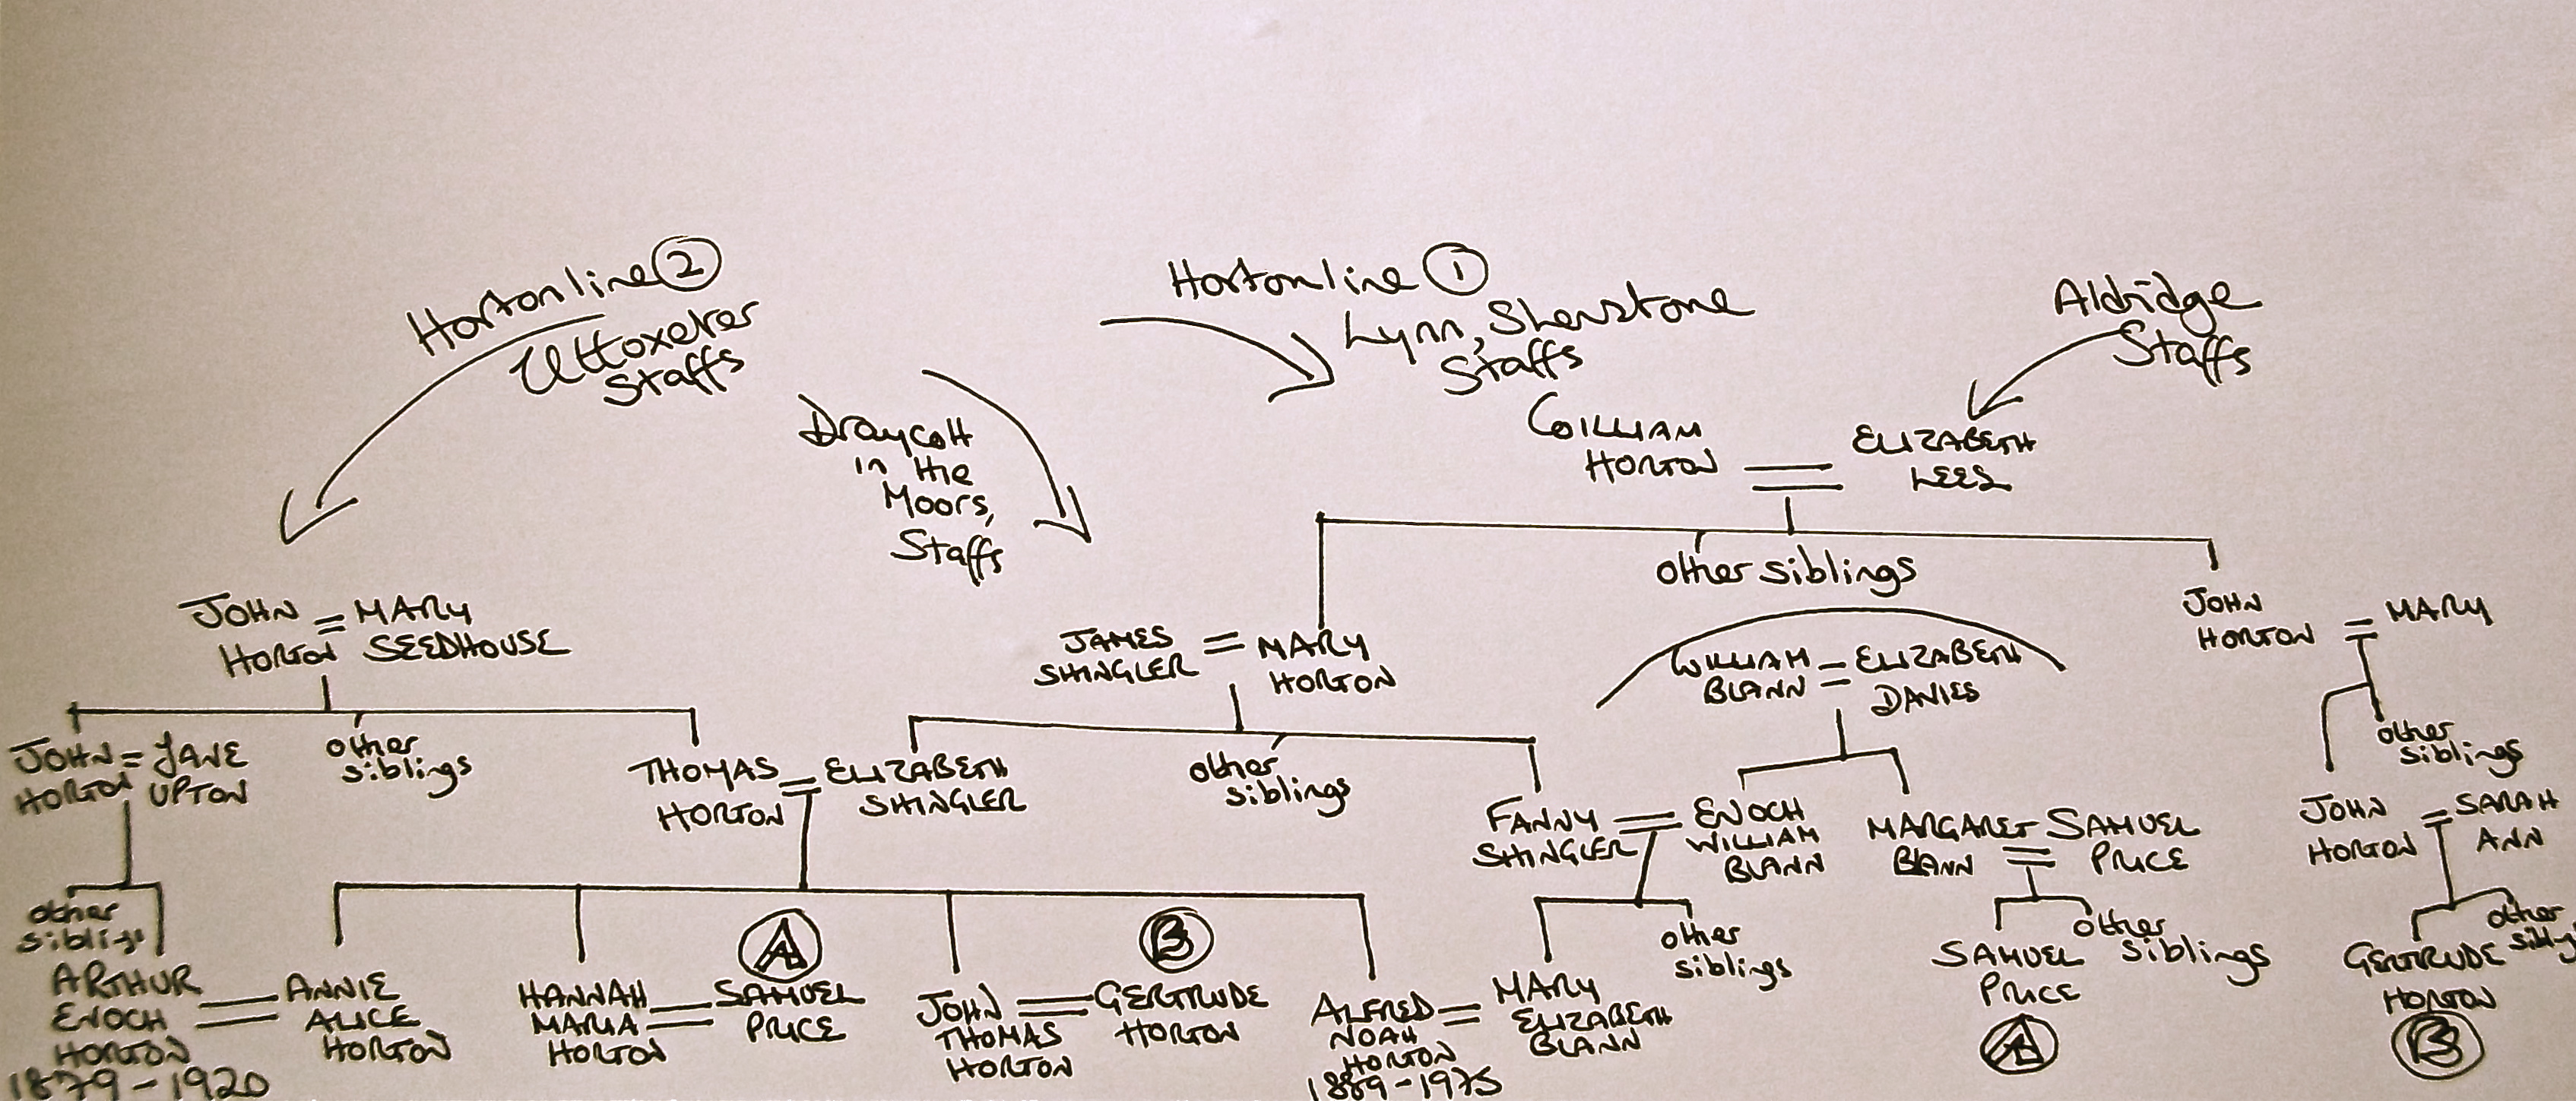 Hortonline ②
Uttoxeter
Staffs
Hortonline ①
Lynn, Shenstone
Staffs
Aldridge
Staffs
Draycott
in the
Moors,
Staffs
WILLIAM
HORTON
ELIZABETH
LEES
other siblings
JOHN
HORTON
=
MARY
SEEDHOUSE
JAMES
SHINGLER
=
MARY
HORTON
WILLIAM
BLANN
=
ELIZABETH
DAVIES
JOHN
HORTON
=
MARY
JOHN
HORTON
=
JANE
UPTON
other
siblings
THOMAS
HORTON
=
ELIZABETH
SHINGLER
other
siblings
FANNY
SHINGLER
=
ENOCH
WILLIAM
BLANN
MARGARET
BLANN
=
SAMUEL
PRICE
other
siblings
JOHN
HORTON
=
SARAH
ANN
other
siblings
ARTHUR
ENOCH
HORTON
1879-1920
=
ANNIE
ALICE
HORTON
HANNAH
MARIA
HORTON
=
A
SAMUEL
PRICE
JOHN
THOMAS
HORTON
=
B
GERTRUDE
HORTON
ALFRED
NOAH
HORTON
1889-1975
=
MARY
ELIZABETH
BLANN
other
siblings
SAMUEL
PRICE
A
other
siblings
GERTRUDE
HORTON
B
other